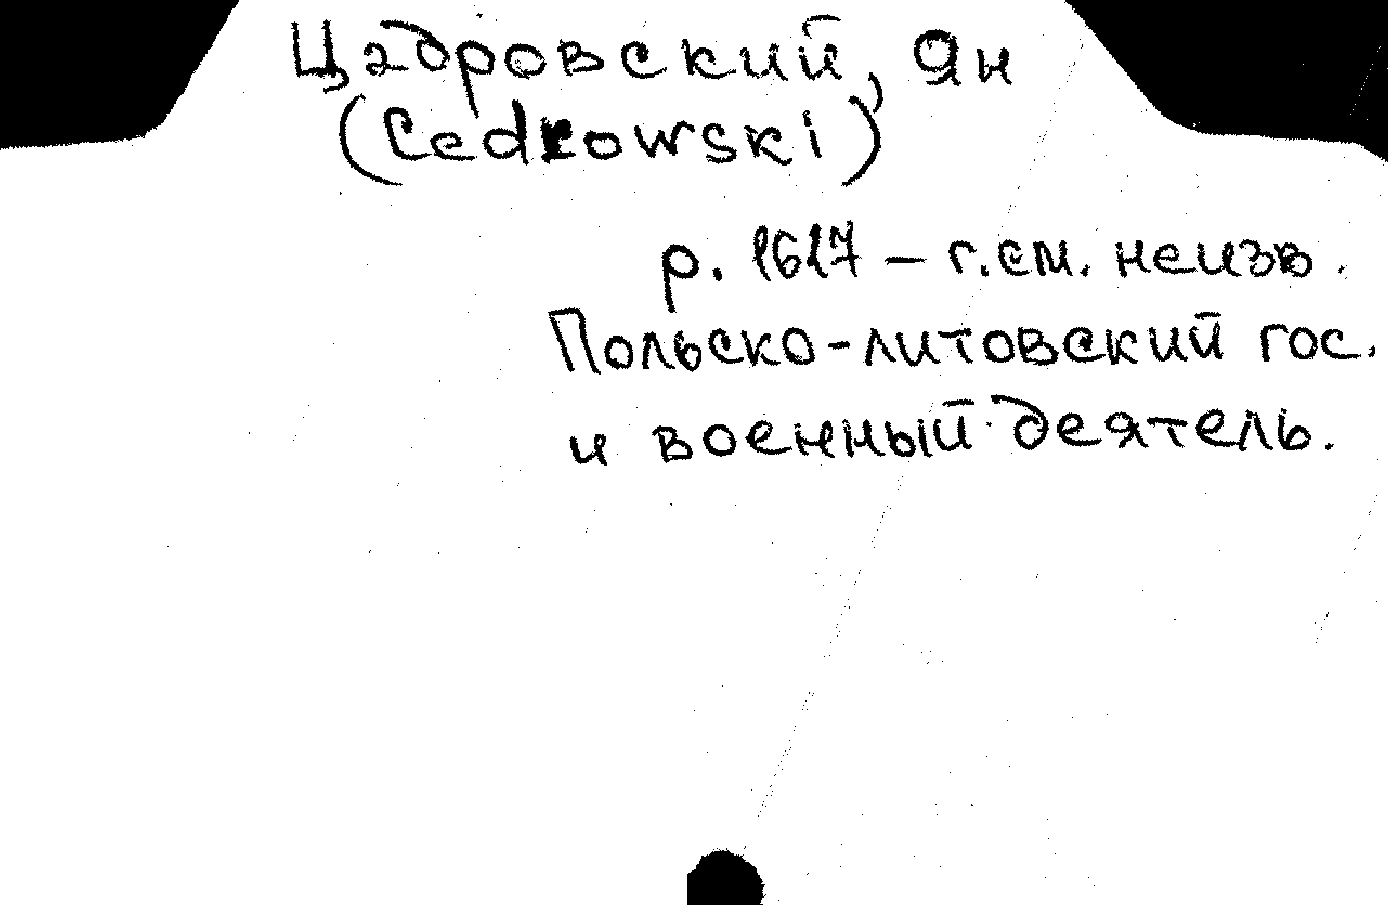 Цэдровский, Ян
(Cedrowski)
р. 1617 – г.см. неизв.
Польско-литовский гос.
и военный деятель.